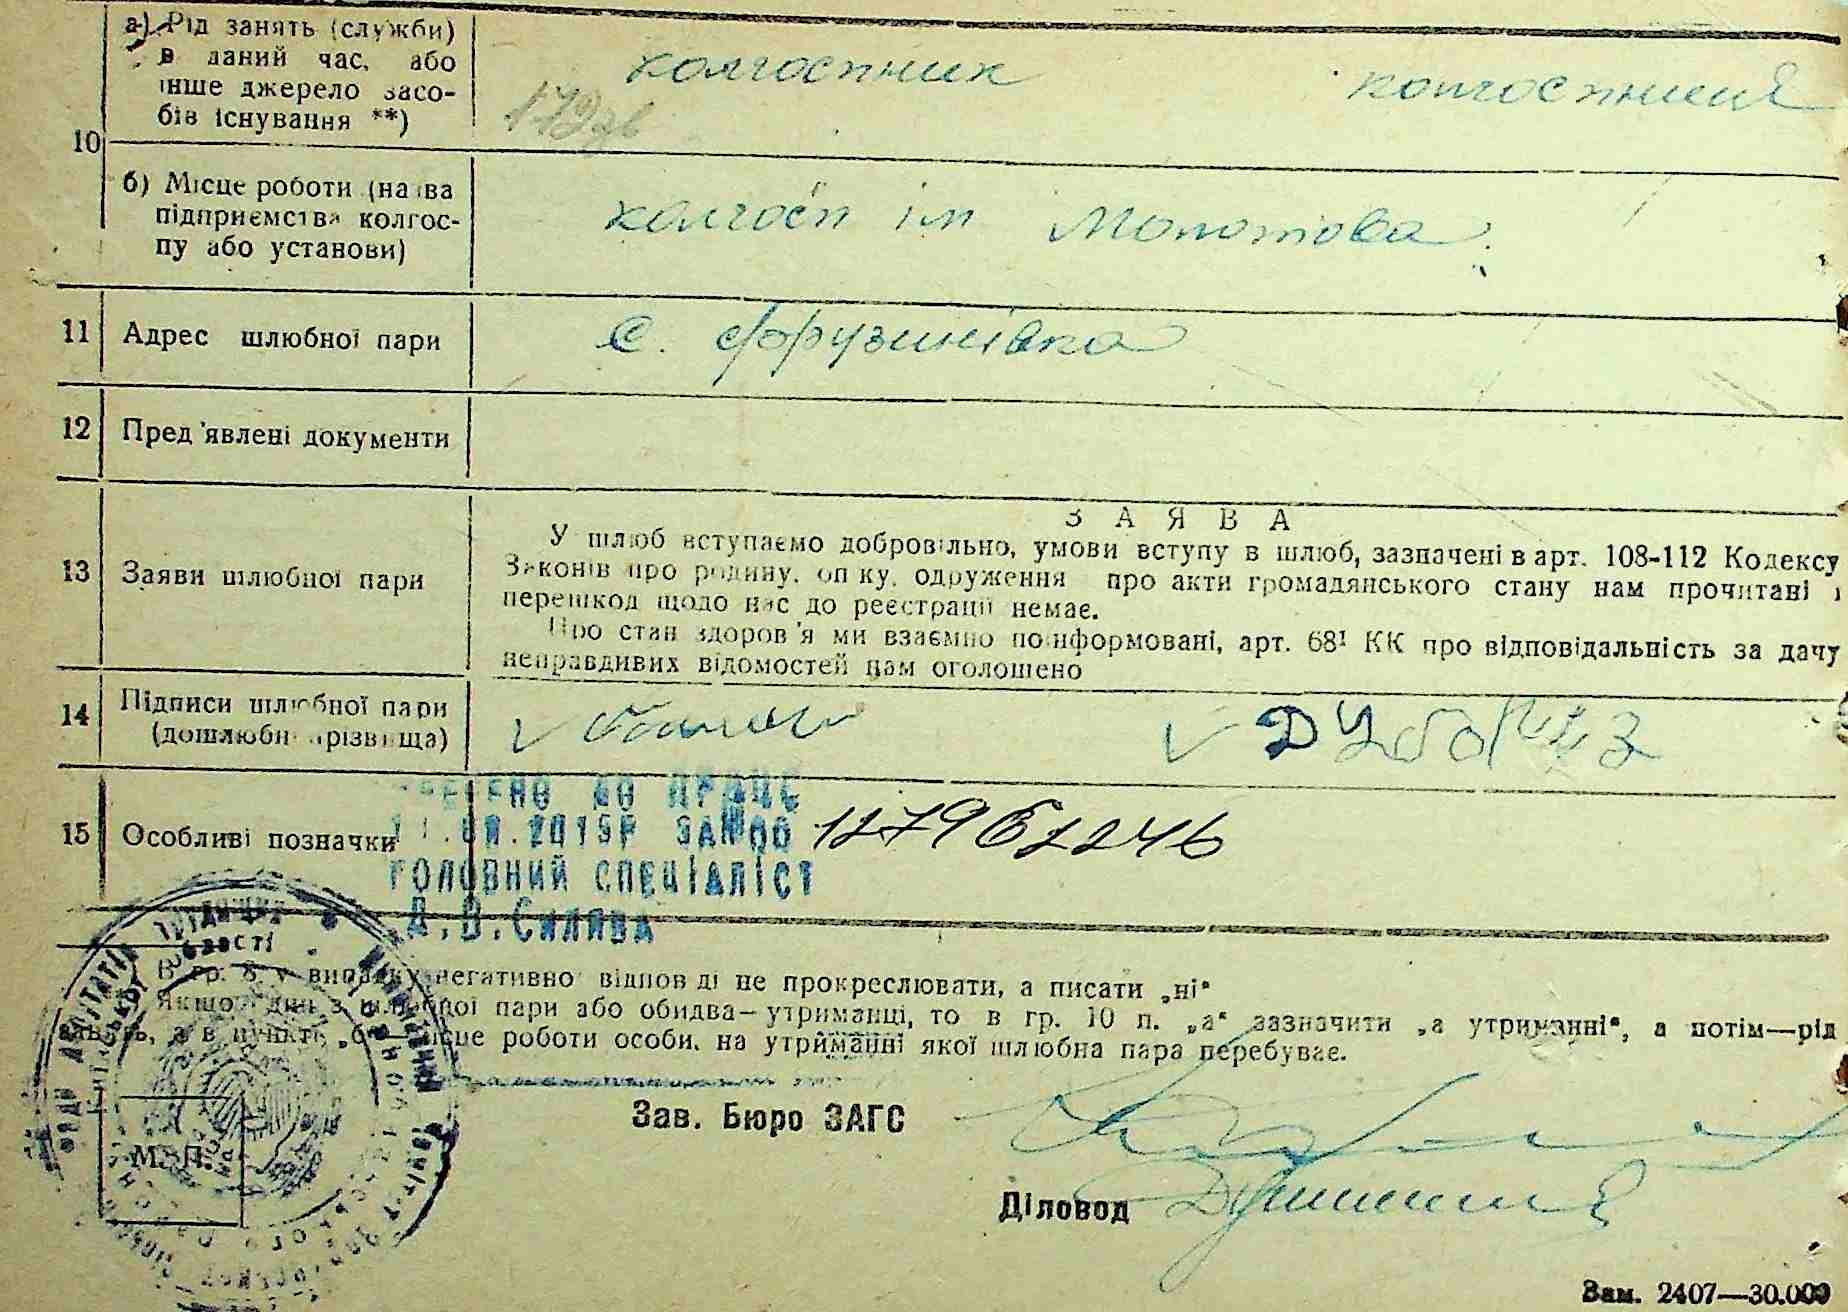 10
а) Рід занять (служби)
в даний час, або
інше джерело засо-
бів існування **)
колгоспник колгоспниця
б) Місце роботи (назва
підприємства колгос-
пу або установи)
колгосп ім Молотова
11 Адрес шлюбної пари
с. Фрузинівка
12 Пред'явлені документи
13 Заяви шлюбної пари
ЗАЯВА
У шлюб вступаємо добровільно, умови вступу в шлюб, зазначені в арт. 108-112 Кодексу
Законів про родину, опіку, одруження про акти громадянського стану нам прочитані і
перешкод щодо нас до реєстрації немає.
Про стан здоров'я ми взаємно поінформовані, арт. 68¹ КК про відповідальність за дачу
неправдивих відомостей нам оголошено
14 Підписи шлюбної пари
(дошлюбні прізвища)
15 Особливі позначки
ДО ДРАЦС
2019Р ЗА№00
ГОЛОВНИЙ СПЕЦІАЛІСТ
Д.В.Силява
В гр. 8 у випадку негативної відповіді не прокреслювати, а писати „ні“
Якщо один з шлюбної пари або обидва—утриманці, то в гр. 10 п. „а“ зазначити „а утриманні“, а потім—рід
а в пункті „б“—місце роботи особи, на утриманні якої шлюбна пара перебуває.
М. П.
Зав. Бюро ЗАГС
Діловод
Зам. 2407—30.000